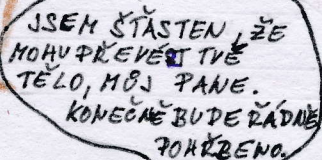 JSEM ŠŤASTEN, ŽE
MOHU PŘEVÉST TVÉ
TĚLO, MŮJ PANE.
KONEČNĚ BUDE ŘÁDNĚ
POHŘBENO.